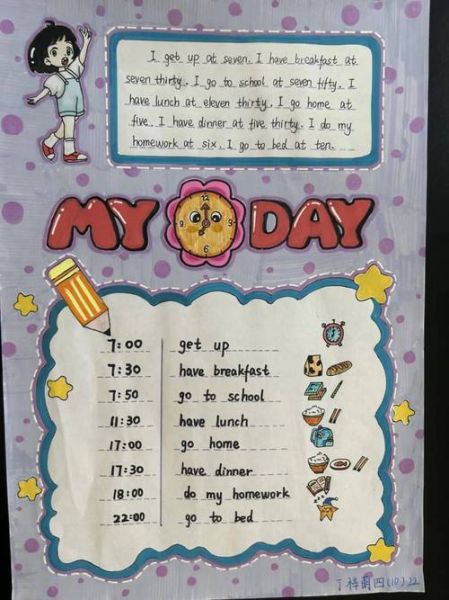 I get up at seven. I have breakfast at
seven thirty. I go to school at seven fifty. I
have lunch at eleven thirty. I go home at
five. I have dinner at five thirty. I do my
homework at six. I go to bed at ten.
MY DAY
12
3
6
9
7:00 get up
7:30 have breakfast
7:50 go to school
11:30 have lunch
17:00 go home
17:30 have dinner
18:00 do my homework
22:00 go to bed
四(10) 22